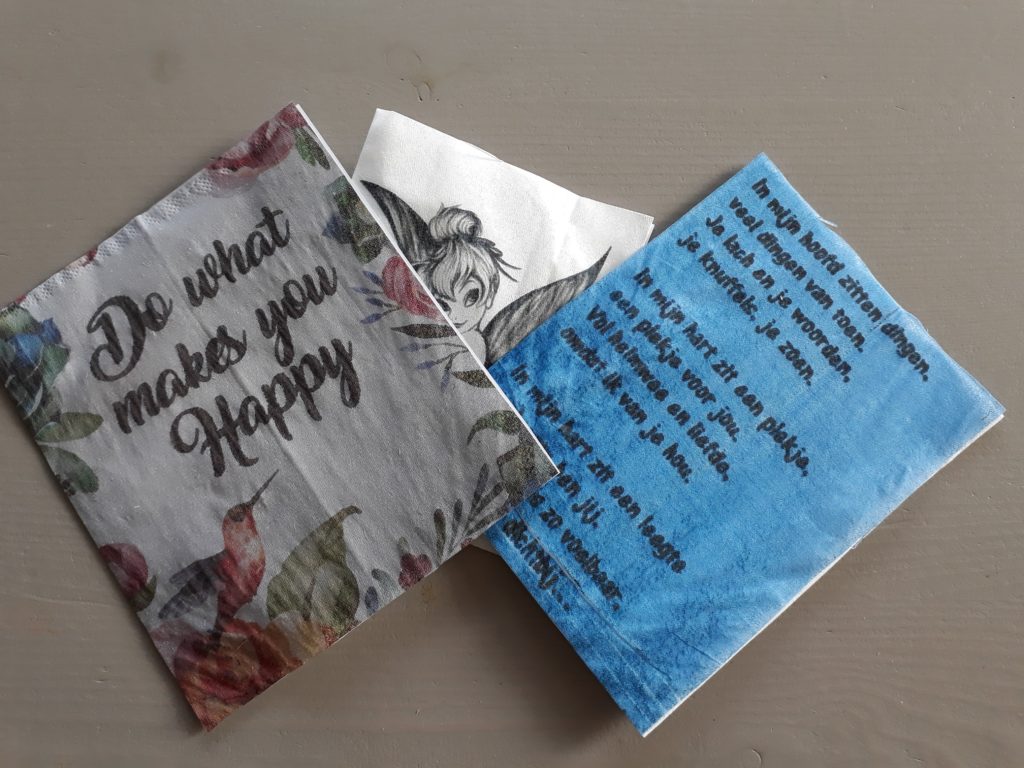 Do what
makes you
Happy
In mijn hoofd zitten dingen,
veel dingen van toen.
Je lach en je woorden,
je knuffels, je zoen.
In mijn hart zit een plekje,
een plekje voor jou.
Vol heimwee en liefde,
omdat ik van je hou.
In mijn hart zit een leegte
ben jij.
zo voelbaar,